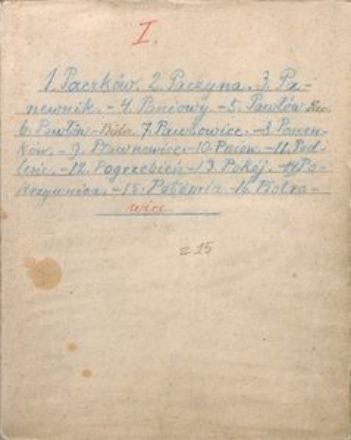 I.
1. Paczków. 2. Paczyna. 3. Pa-
newnik. - 4. Paniowy. - 5. Pawłów
6. Pawłów - 7. Pawłowice. - 8.
ków. - 9. Pławniowice - 10. Pniów. - 11. Pod-
lesie. - 12. Pogrzebień - 13. Pokój. - 14. Po-
krzywnica. - 15. Połomia. 16. Piotro-
wice.
z 15